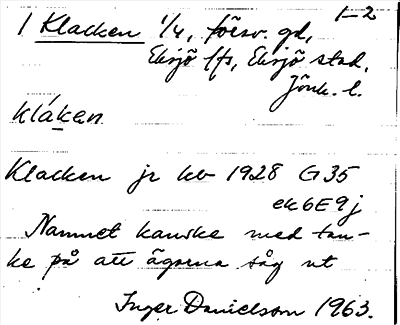 1-2
1 Klacken 1/4, försv. gd,
Eksjö lfs, Eksjö stad,
Jönk. l.
kláken
Klacken jr kb 1928 G 35
ek 6E9j
Namnet kanske med tan-
ke på att ägorna låg ut
Inger Danielsson 1963.